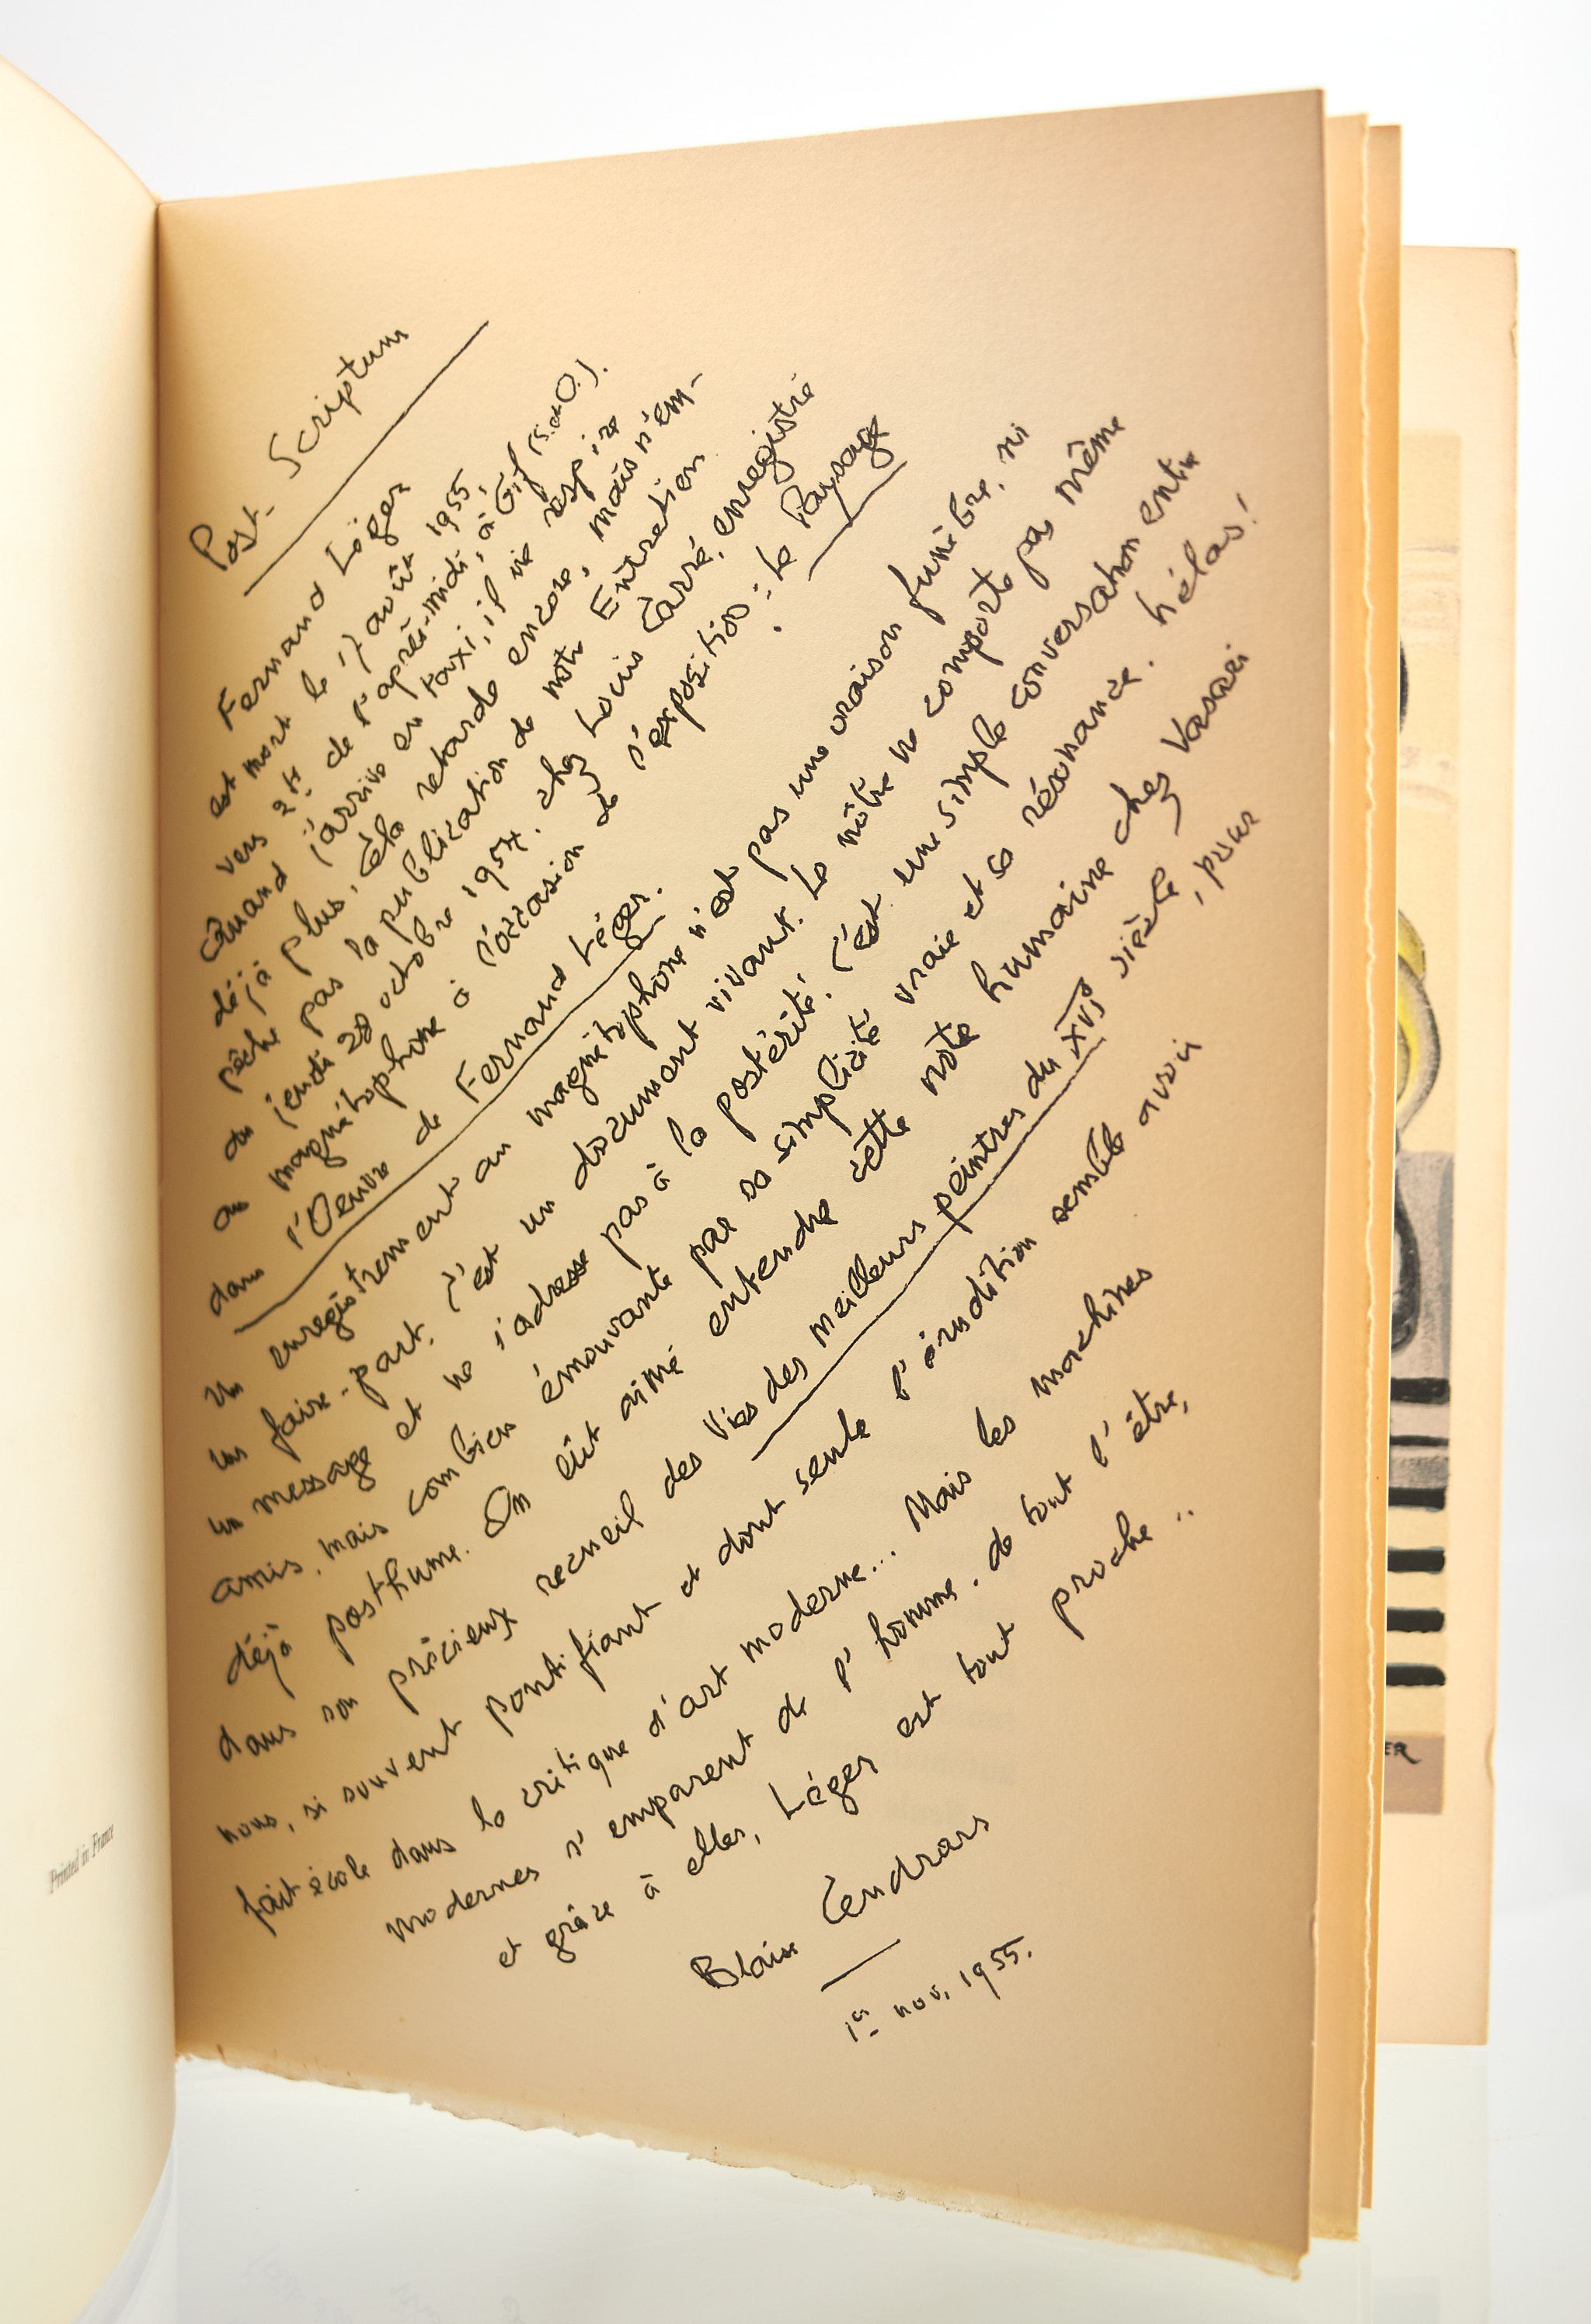 Printed in France
Post-Scriptum
Fernand Léger
est mort le 17 août 1955,
vers 2 H de l'après-midi, à Gif (S.et O.).
Quand j'arrive en taxi, il ne respire
déjà plus. Cela retarde encore, mais n'em-
pêche pas la publication de notre Entretien
du jeudi octobre 1954, chez Louis Carré, enregistré
au magnétophone à l'occasion de l'exposition : Le Paysage
dans l'Oeuvre de Fernand Léger.
Un enregistrement au magnétophone n'est pas une oraison funèbre, ni
un faire-part. C'est un document vivant. Le nôtre ne comporte pas même
un message et ne s'adresse pas à la postérité. C'est une simple conversation entre
amis, mais combien émouvante par sa simplicité vraie et sa résonance, hélas!
déjà posthume. On eût aimé entendre cette note humaine chez Vasari
dans son précieux recueil des Vies des meilleurs peintres du XVIe siècle, pour
nous, si souvent pontifiant et dont seule l'érudition semble avoir
fait école dans la critique d'art moderne... Mais les machines
modernes s'emparent de l'homme, de tout l'être,
et grâce à elles, Léger est tout proche..
Blaise Cendrars
1er nov. 1955.
ER